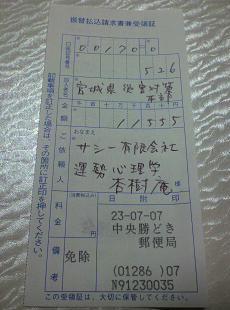 振替払込請求書兼受領証
口座記号番号
00170=0
526
加入者名
宮城県災害対策本部
金額
千百十万千百十円
11555
ご依頼人
おなまえ
サシー有限会社
運勢心理学
杏樹庵
様
料金
(消費税込み)
円
日附印
23-07-07
中央勝どき
郵便局
備考
免除
(01286 )07
N91230035
記載事項を訂正した場合は、その箇所に訂正印を押してください。
この受領証は、大切に保管してください。